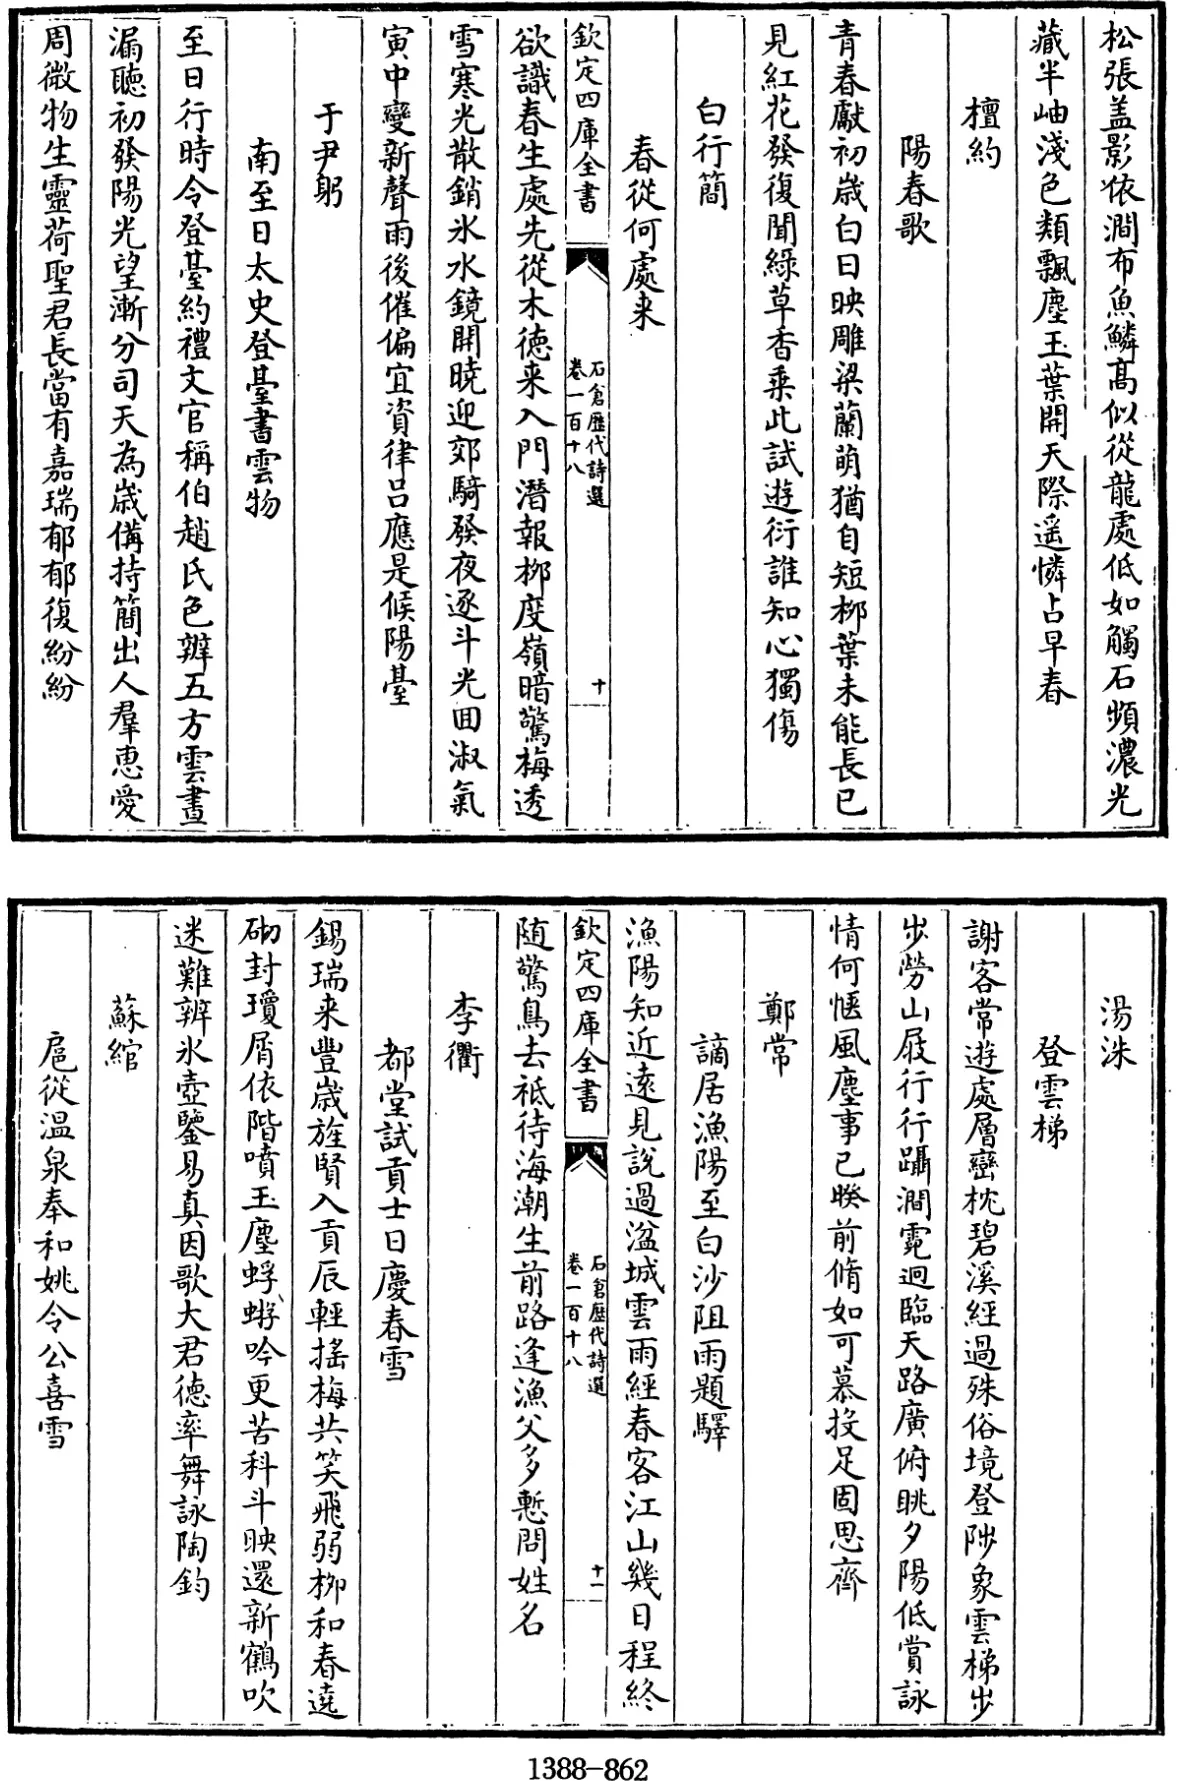 松張盖影依澗布魚鱗髙似從龍處低如觸石頻濃光
藏半岫淺色類飄塵玉葉開天際遥憐占早春
檀約
陽春歌
青春獻初歲白日映雕梁蘭萌猶自短柳葉未能長已
見紅花發復聞綠草香乗此試遊衍誰知心獨傷
白行簡
春從何處来
欽定四庫全書
石倉歷代詩選
卷一百十八
十
欲識春生處先從木徳来入門潛報柳度嶺暗驚梅透
雪寒光散銷氷水鏡開曉迎郊騎發夜逐斗光囬淑氣
寅中變新聲雨後催偏宜資律吕應是候陽臺
于尹躬
南至日太史登臺書雲物
至日行時令登臺約禮文官稱伯趙氏色辨五方雲晝
漏聽初發陽光望漸分司天為歲備持簡出人羣惠愛
周微物生靈荷聖君長當有嘉瑞郁郁復紛紛
湯洙
登雲梯
謝客常遊處層巒枕碧溪經過殊俗境登陟象雲梯步
步勞山屐行行躡澗霓迥臨天路廣俯眺夕陽低賞詠
情何愜風塵事已暌前脩如可慕投足固思齊
鄭常
謫居漁陽至白沙阻雨題驛
漁陽知近逺見說過湓城雲雨經春客江山幾日程終
欽定四庫全書
石倉歷代詩選
卷一百十八
十一
随驚鳥去祗待海潮生前路逢漁父多慙問姓名
李衢
都堂試貢士日慶春雪
錫瑞来豐歲旌賢入貢辰輕搖梅共笑飛弱柳和春遶
砌封瓊屑依階噴玉塵蜉蝣吟更苦科斗映還新鶴吹
迷難辨氷壺鑒易真因歌大君徳率舞詠陶鈞
蘇綰
扈從温泉奉和姚令公喜雪
1388-862